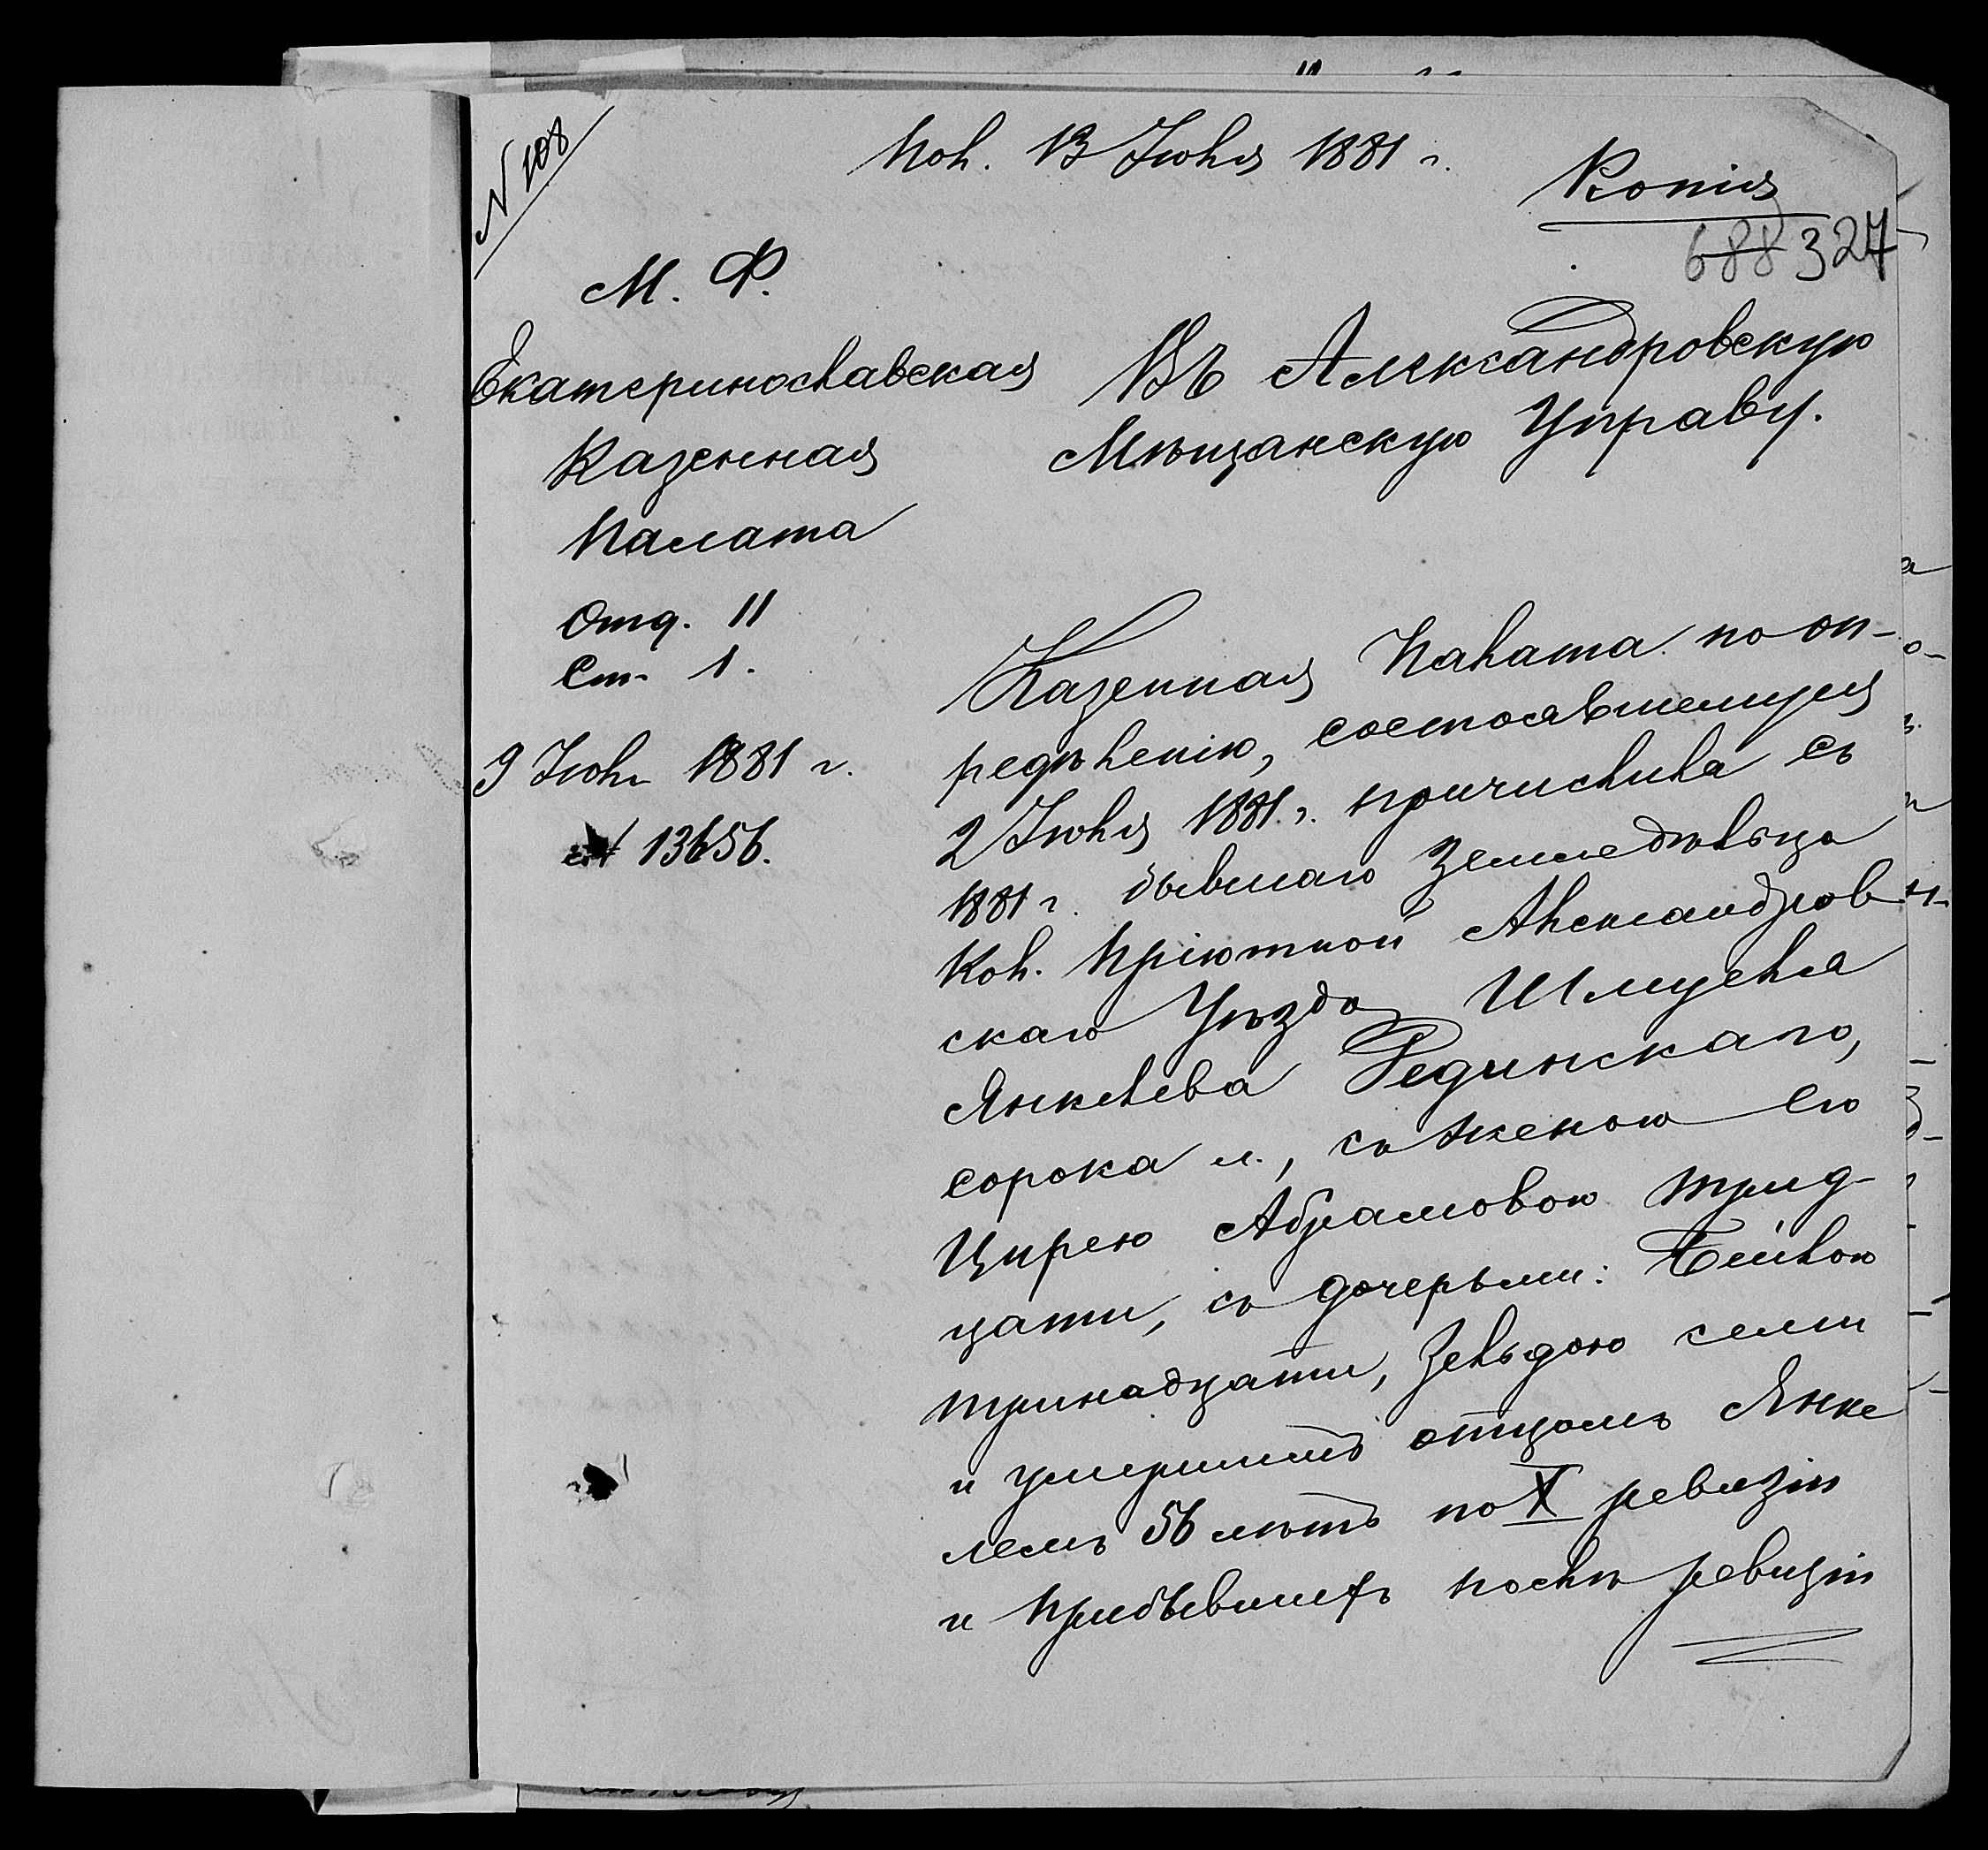 N 108
Пол. 13 Іюля 1881 г.
Копія
688 327
М. Ф.
Екатеринославская
Казенная
Палата
Отд. II
Ст. 1.
9 Іюля 1881 г.
№ 13656.
Въ Александровскую
Мѣщанскую Управу.
Казенная Палата по оп-
редѣленію, состоявшемуся
2 Іюля 1881 г. причислила съ
1881 г. бывшаго Земледѣльца
Кол. Пріютной Александров
скаго Уѣзда Шмуеля
Янкелева Рединскаго,
сорока л., съ женою его
Цирею Абрамовою трид-
цати, съ дочерьми: Бейлою
тринадцати, Зельдою семи
и умершимъ отцомъ Янке
лемъ 56 лѣтъ по X ревизіи
и прибывшихъ послѣ ревизіи